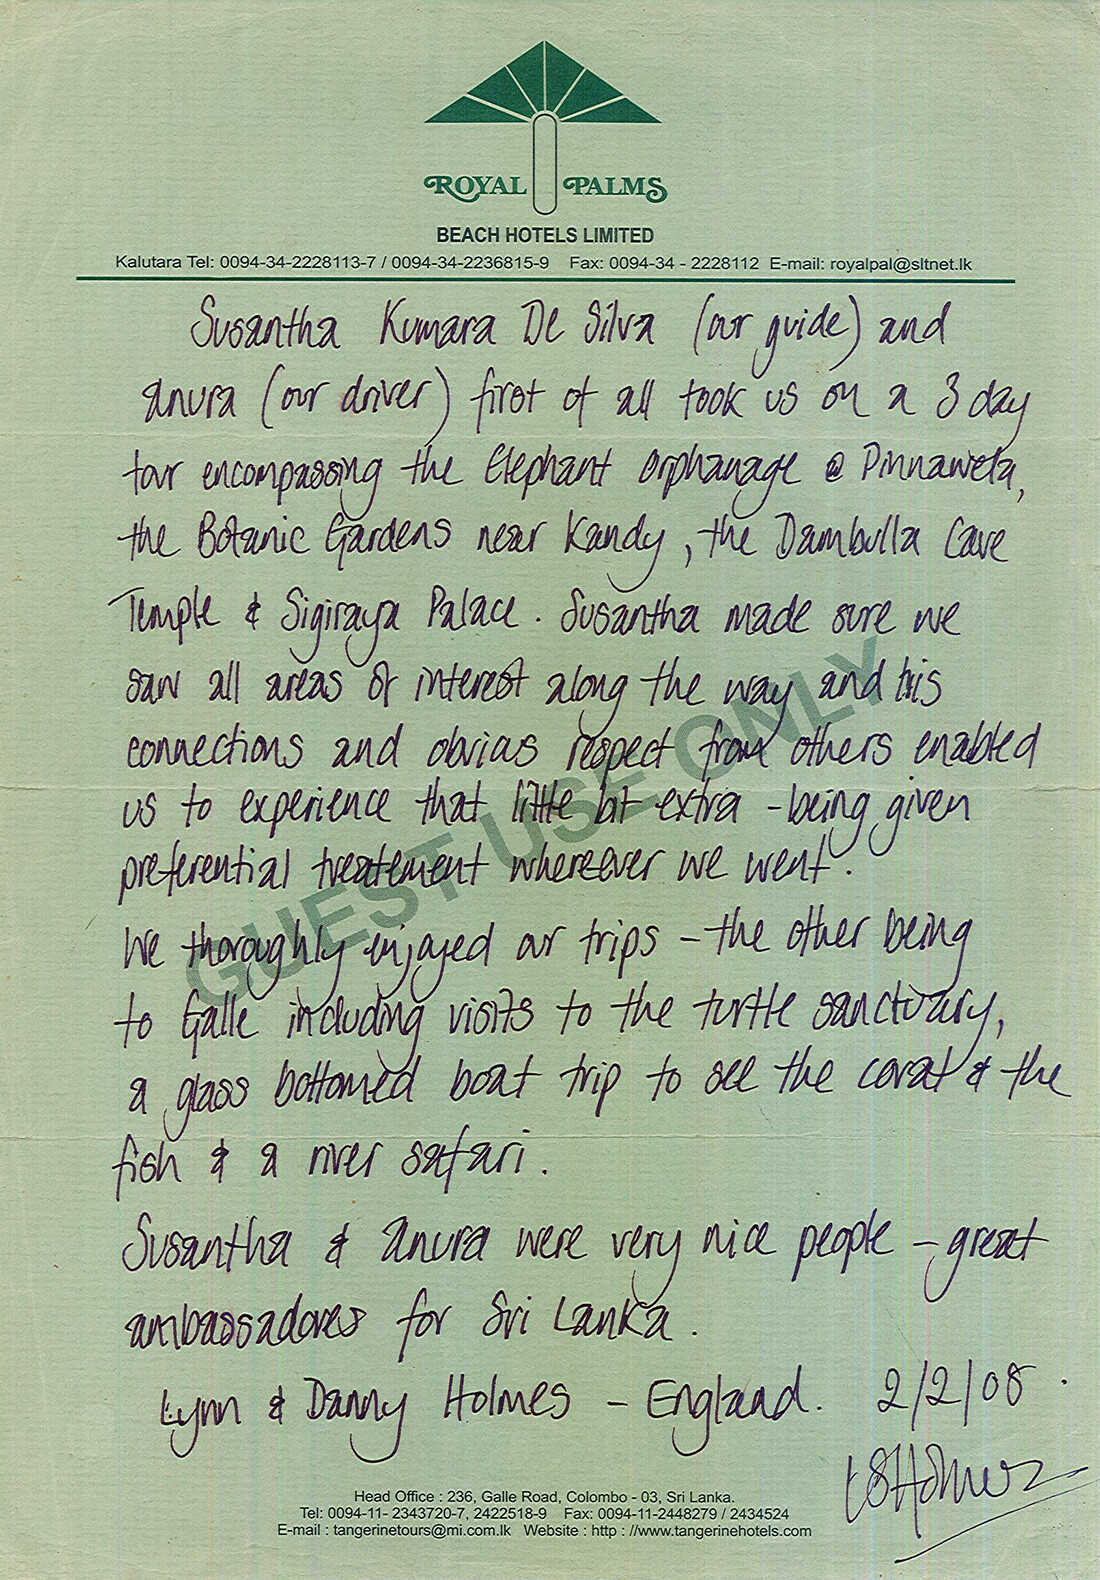 ROYAL PALMS
BEACH HOTELS LIMITED
Kalutara Tel: 0094-34-2228113-7 / 0094-34-2236815-9 Fax: 0094-34 - 2228112 E-mail: royalpal@sltnet.lk
Susantha Kumara De Silva (our guide) and
Anura (our driver) first of all took us on a 3 day
tour encompassing the Elephant Orphanage @ Pinnawela,
the Botanic Gardens near Kandy, the Dambulla Cave
Temple & Sigiraya Palace. Susantha made sure we
saw all areas of interest along the way and his
connections and obvious respect from others enabled
us to experience that little bit extra - being given
preferential treatement whereever we went.
We thoroughly enjoyed our trips - the other being
to Galle including visits to the turtle sanctuary,
a glass bottomed boat trip to see the coral & the
fish & a river safari.
Susantha & Anura were very nice people - great
ambassadores for Sri Lanka.
Lynn & Danny Holmes - England. 2/2/08.
GUEST USE ONLY
Head Office : 236, Galle Road, Colombo - 03, Sri Lanka.
Tel: 0094-11- 2343720-7, 2422518-9 Fax: 0094-11-2448279 / 2434524
E-mail : tangerinetours@mi.com.lk Website : http : //www.tangerinehotels.com